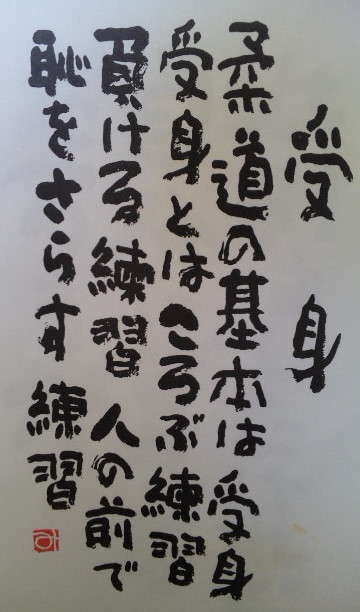 受身
柔道の基本は 受身
受身とは ころぶ 練習
負ける 練習 人の前で
恥をさらす 練習
み